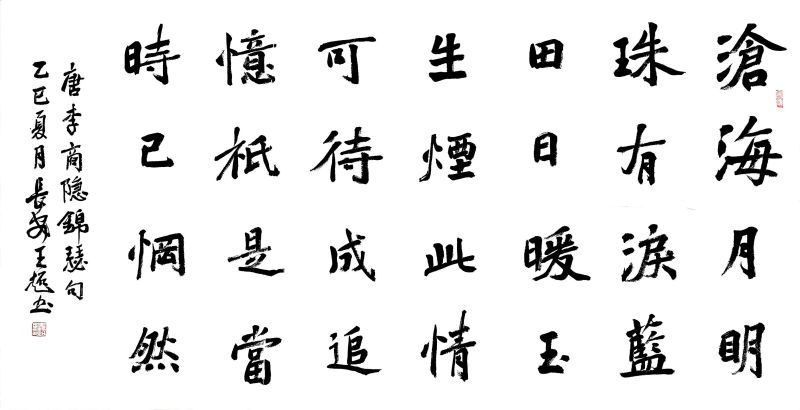 滄海月明
珠有淚藍
田日暖玉
生煙此情
可待成追
憶祇是當
時已惘然
唐李商隐錦瑟句
乙巳夏月長安王超书